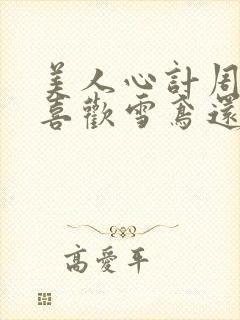 美人心計周
喜歡雪鳶還
高愛平